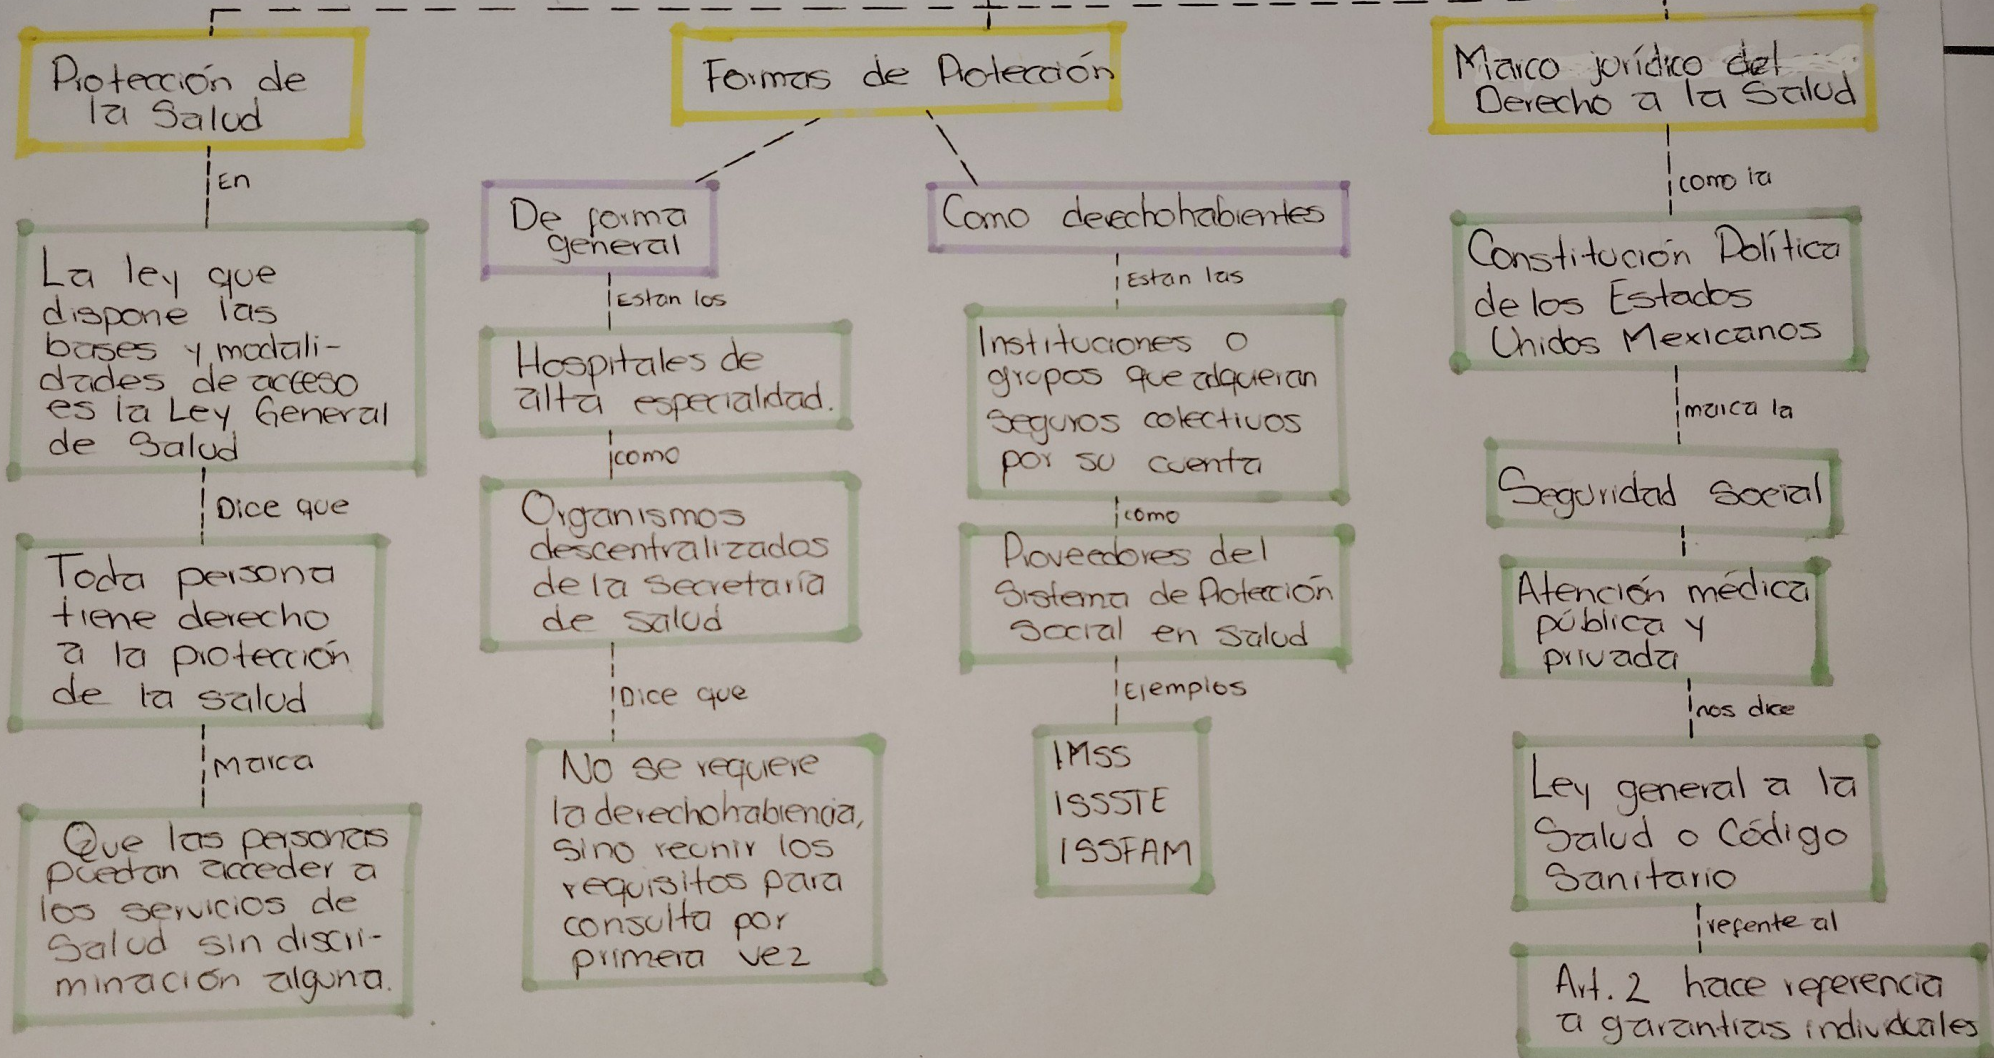 Protección de
la Salud
En
La ley que
dispone las
bases y modali-
dades de acceso
es la Ley General
de Salud
Dice que
Toda persona
tiene derecho
a la protección
de la salud
Marca
Que las personas
puedan acceder a
los servicios de
Salud sin discri-
minación alguna.
Formas de Protección
De forma
general
Estan los
Hospitales de
alta especialidad.
como
Organismos
descentralizados
de la secretaría
de salud
Dice que
No se requiere
la derechohabiencia,
sino reunir los
requisitos para
consulta por
primera vez
Como derechohabientes
Estan las
Instituciones o
grupos que adquieran
seguros colectivos
por su cuenta
como
Proveedores del
Sistema de Protección
Social en salud
Ejemplos
IMSS
ISSSTE
ISSFAM
Marco jurídico del
Derecho a la Salud
como la
Constitución Política
de los Estados
Unidos Mexicanos
marca la
Seguridad social
Atención médica
pública y
privada
nos dice
Ley general a la
Salud o Código
Sanitario
refente al
Art. 2 hace referencia
a garantías individuales